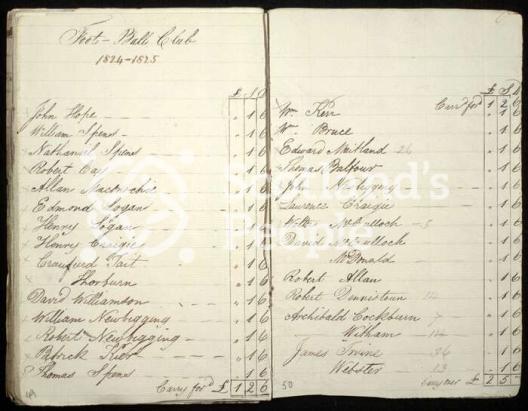 Foot-Ball Club
1824-1825
£ S D
John Hope - " 1 6
William Spens - " 1 6
Nathaniel Spens " 1 6
Robert " 1 6
Allan " 1 6
Edmond Logan " 1 6
Henry Logan - " 1 6
Henry Craigie - " 1 6
Craufurd Tait " 1 6
Thorburn " 1 6
David Williamson - " 1 6
William Newbigging - " 1 6
Robert Newbigging - " 1 6
Patrick " 1 6
Thomas Spens " 1 6
Carry for'd £ 1 2 6
49
£ S D
Carr'd for'd 1 2 6
Wm Kerr " 1 6
Wm Bruce " 1 6
Edward Maitland 26 " 1 6
Thomas Balfour " 1 6
John Newbigging " 1 6
Lawrence Craigie " 1 6
McCulloch " 1 6
David McCulloch " 1 6
McDonald - " 1 6
Robert Allan " 1 6
Robert Dennistoun " 1 6
Archibald Cockburn 7 " 1 6
Witham " 1 6
James Irvine 36 " 1 6
Webster - 13 " 1 6
£ 2 5 -
50
Scotland's
People